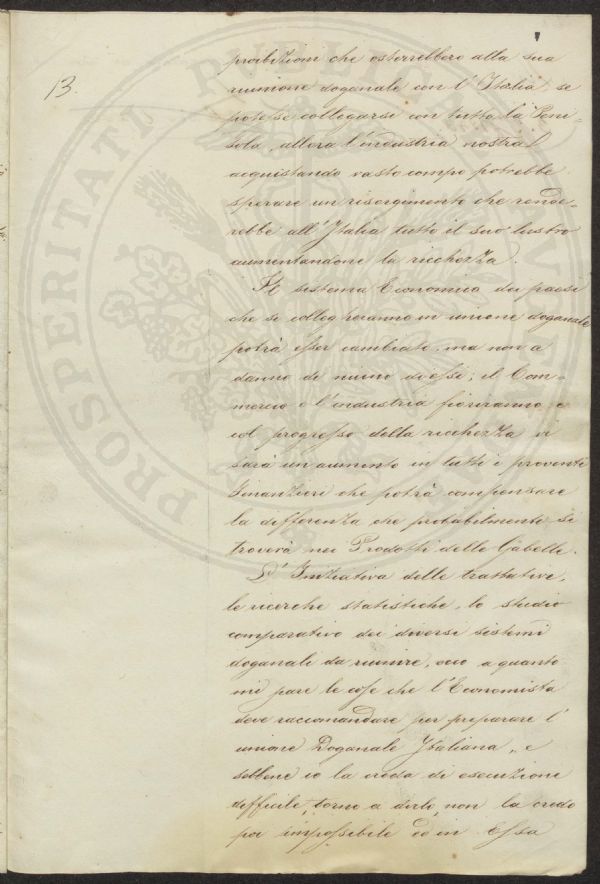 13.
proibizioni che osterrebbero alla sua
riunione doganale con l'Italia, se
potesse collegarsi con tutta la Peni-
sola, allora l'industria nostra
acquistando vasto campo potrebbe
sperare un risorgimento che rende-
rebbe all'Italia tutto il suo lustro
aumentandone la ricchezza.
Il sistema Economico dei paesi
che si collegheranno in unione doganale
potrà esser cambiato, ma non a
danno di niuno d'essi; il Com-
mercio e l'industria fioriranno e
col progresso della ricchezza vi
sarà un aumento in tutti i proventi
Finanzieri che potrà compensare
la differenza che probabilmente si
troverà nei Prodotti delle Gabelle.
L'Iniziativa delle trattative,
le ricerche statistiche, lo studio
comparativo dei diversi sistemi
doganali da riunire, ecco a quanto
mi pare le cose che l'Economista
deve raccomandare per preparare l'
unione Doganale Italiana, e
sebbene io la creda di esecuzione
difficile, torno a dirlo, non la credo
poi impossibile ed in Essa
PROSPERITATI PUBLICAE